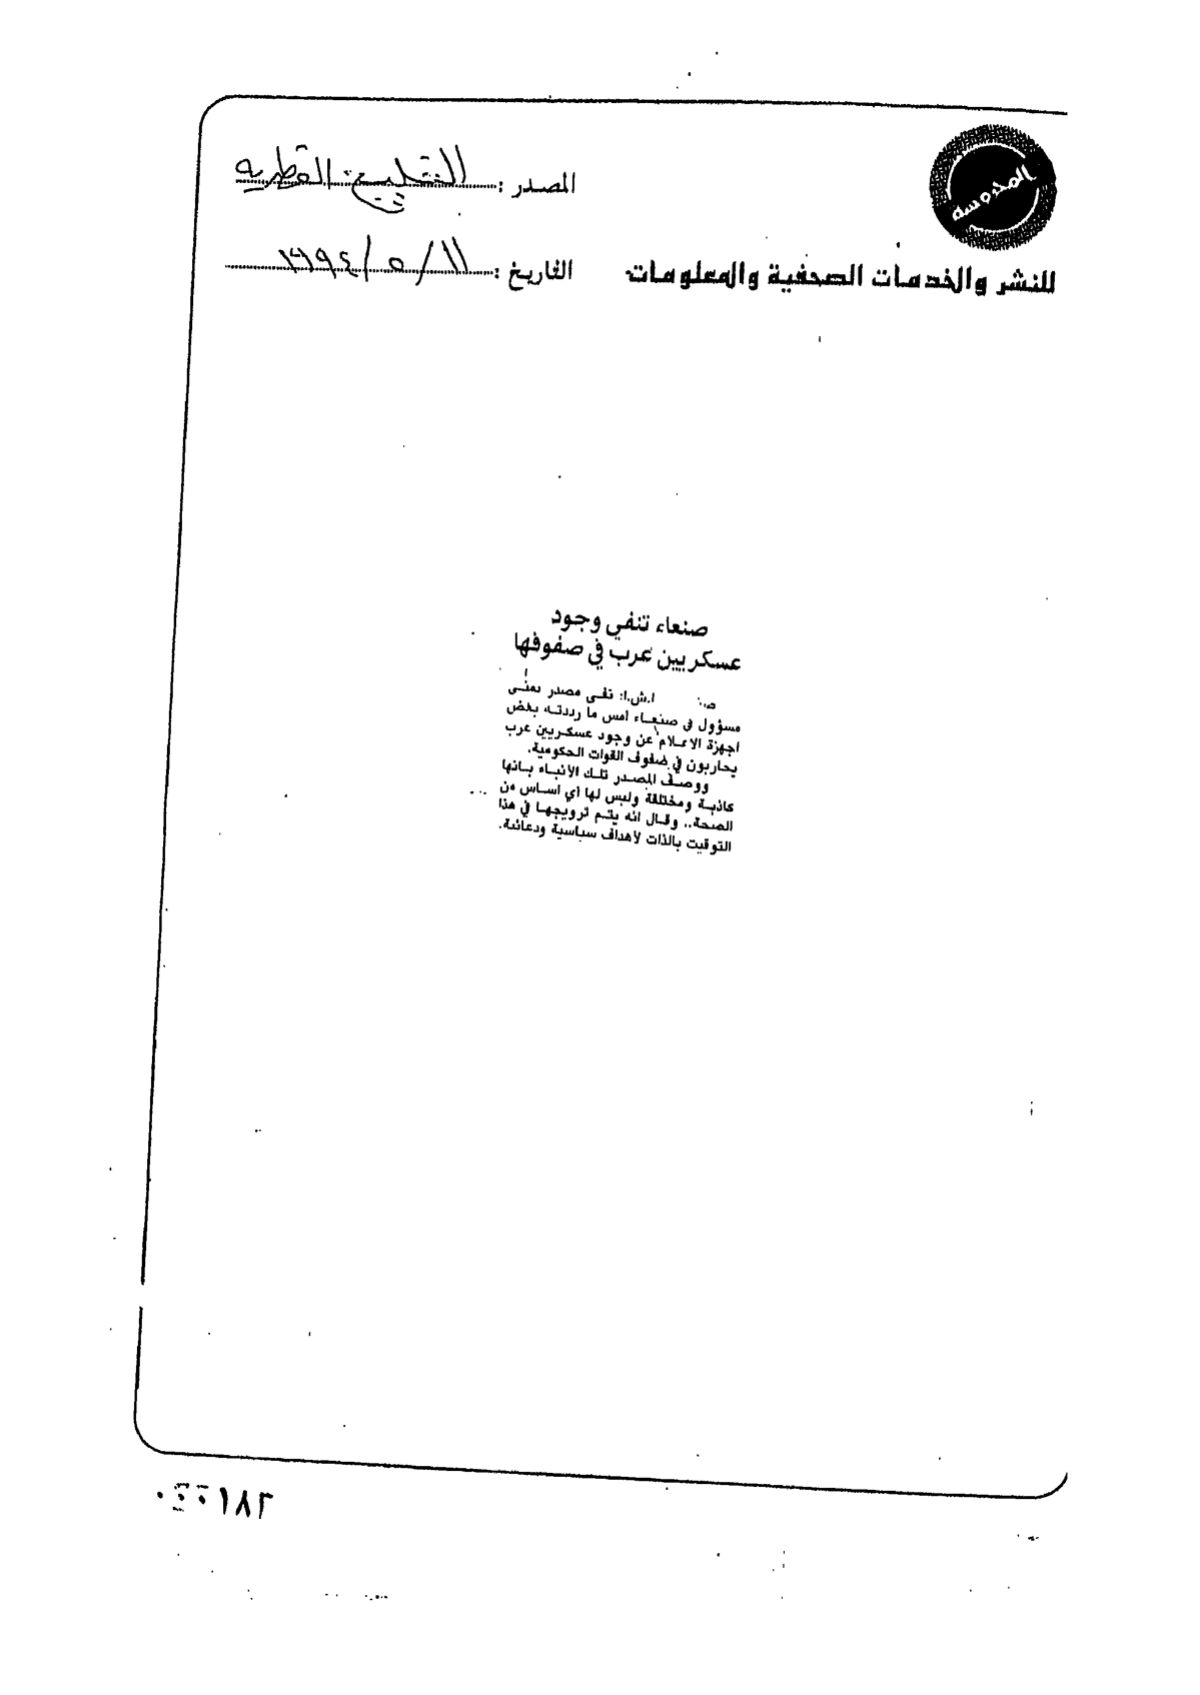 المحروسة
للنشر والخدمات الصحفية والمعلومات
المصدر : القطرية
التاريخ : ١١/ ٥ / ١٩٩٤
صنعاء تنفي وجود
عسكريين عرب في صفوفها
ا.ش.ا: نفى مصدر يمني
مسؤول في صنعاء امس ما رددته بعض
اجهزة الاعلام عن وجود عسكريين عرب
يحاربون في صفوف القوات الحكومية.
ووصف المصدر تلك الأنباء بانها
كاذبة ومختلقة وليس لها اي اساس من
الصحة.. وقال انه يتم ترويجها في هذا
التوقيت بالذات لأهداف سياسية ودعائية.